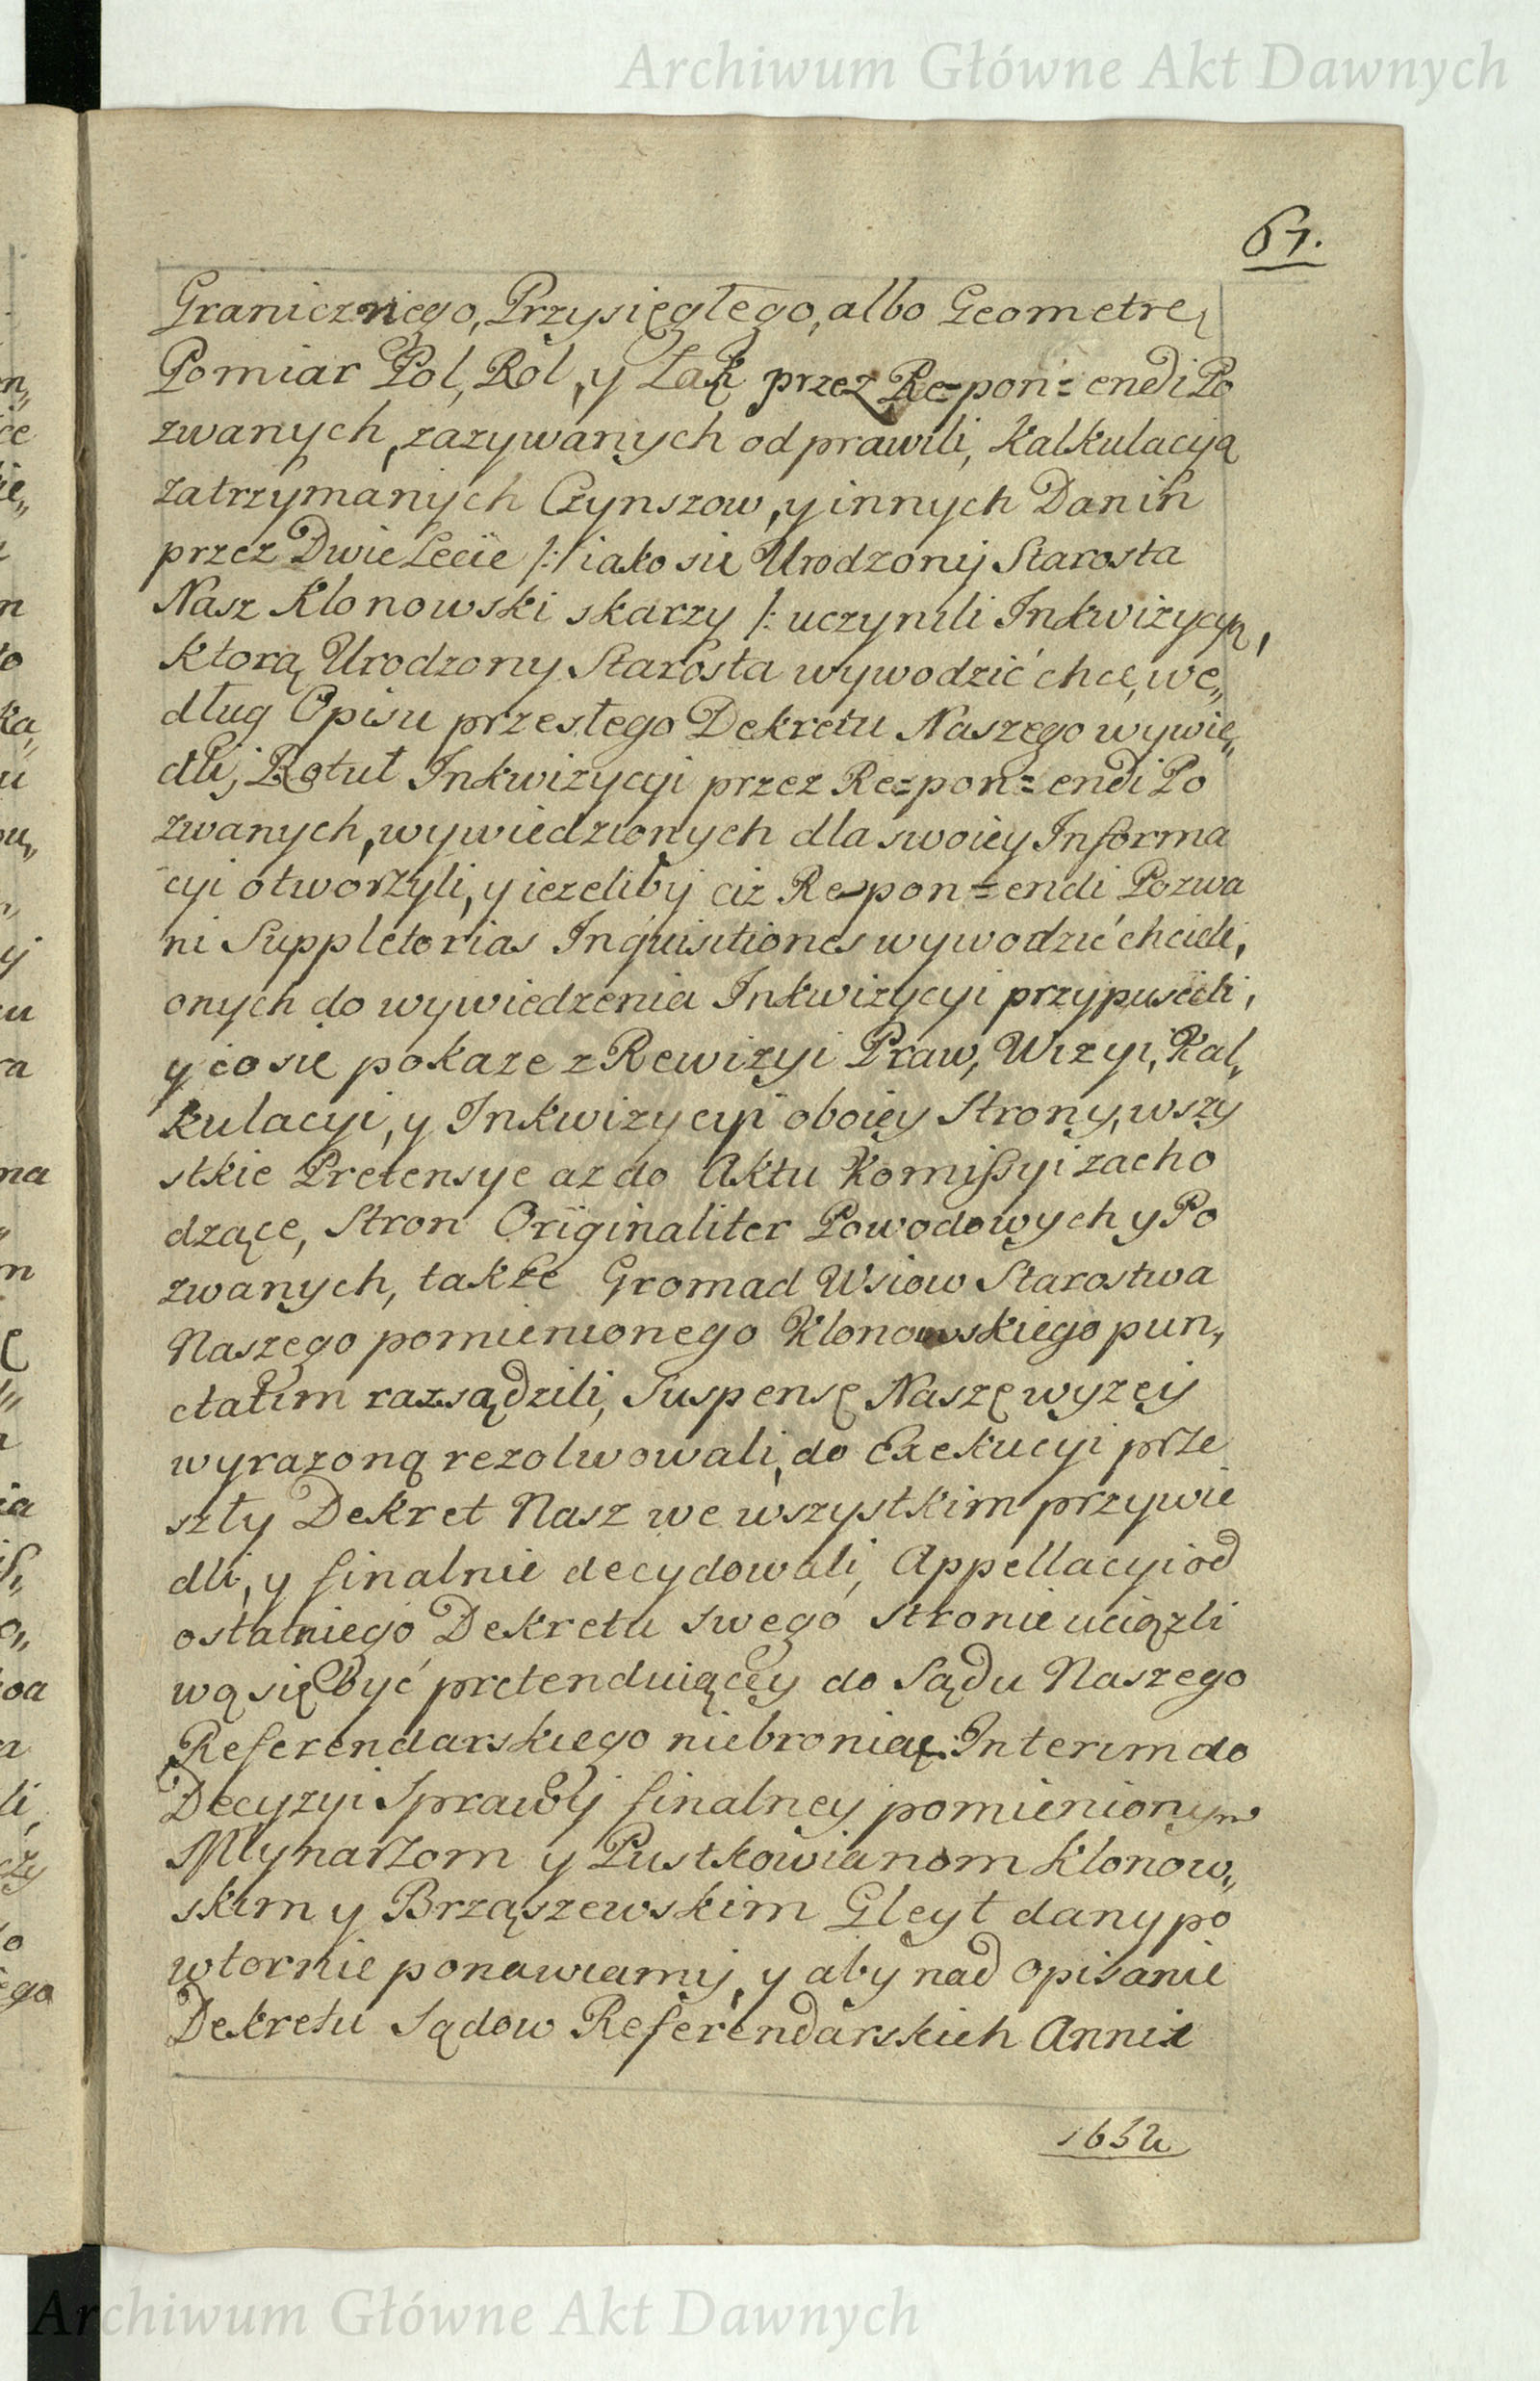 Archiwum Główne Akt Dawnych
67.
Granicznego, Przysięgłego, albo Geometrę
Pomiar Pol, Rol, y Łąk przez Re=pon=endi Po
zwanych, zazywanych odprawili, Kalkulacyą
zatrzymanych Czynszow, y innych Danin
przez Dwie Lecie /:/ iako sie Urodzony Starosta
Nasz Klonowski skarzy /: uczynili Inkwizycyą,
ktorą Urodzony Starosta wywodzić chce, we„
dług Opisu przeszłego Dekretu Naszego wywie„
dli, Rotuł Inkwizycyi przez Re=pon=endi Po
zwanych, wywiedzionych dla swoiey Informa
cyi otworzyli, y iezeliby ciż Re=pon=endi Pozwa
ni Suppletorias Inquisitiones wywodzić chcieli,
onych do wywiedzenia Inkwizycyi przypuscili,
y co się pokaze z Rewizyi Praw, Wizyi, Kal„
kulacyi, y Inkwizycyi oboiey Strony, wszy
stkie Pretensye az do Aktu Komissyi zacho
dzące, Stron Originaliter Powodowych y Po
zwanych, także Gromad Wsiow Starostwa
Naszego pomienionego Klonowskiego pun„
ctatim razsądzili, Suspensę Naszę wyzey
wyrazoną rezolwowali, do Exekucyi prze
szły Dekret Nasz we wszystkim przywie
dli, y finalnie decydowali, Appellacyi od
ostatniego Dekretu swego stronie uciązli
wą się być pretenduiącey do Sądu Naszego
Referendarskiego niebroniąc. Interim do
Decyzyi Sprawy finalney pomienionym
Młynarzom y Pustkowianom Klonow„
skim y Brząszewskim Gleyt dany po
wtornie ponawiamy, y aby nad opisanie
Dekretu Sądow Referendarskich Anni
Archiwum Główne Akt Dawnych